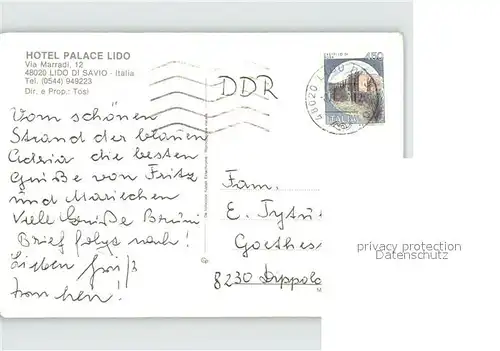 HOTEL PALACE LIDO
Via Marradi, 12
48020 LIDO DI SAVIO - Italia
Tel. (0544) 949223
Dir. e Prop.: Tosi
DDR
450
ITALIA
48020 LIDO
Vom schönen
Strand der blauen
Adria die besten
Grüße von Fritz
und Mariechen
Viele Grüße Bruni
Brief folgt nach!
Lieben Gruß
Fam.
E. Tytu
Goethes
8230 Dippold
privacy protection
Datenschutz